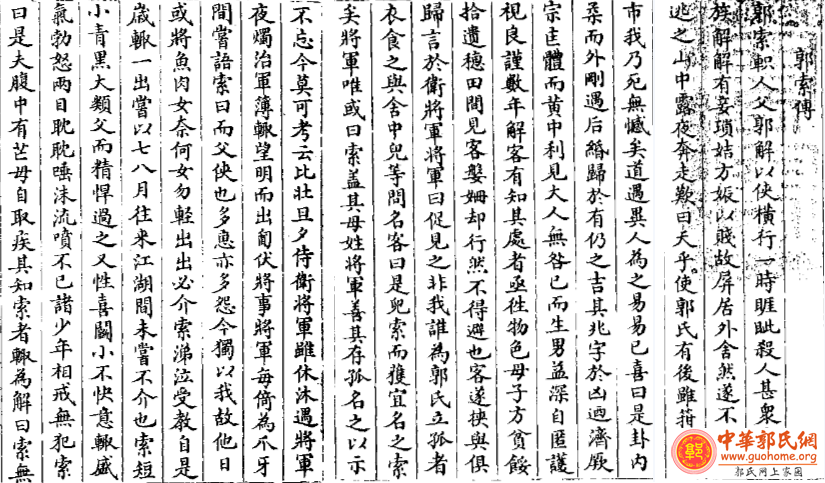 郭索傳
郭索軹人父郭解以俠橫行一時睚眦殺人甚衆
族解解有妾瑣姞方娠以賤故屏居外舍然遂不
逃之山中露夜奔走歎曰天乎使郭氏有後雖葅
市我乃死無憾矣道遇異人為之易易已喜曰是卦内
柔而外剛遇后緡歸於有仍之吉其兆字於凶迺濟厥
宗匡體而黄中利見大人無咎已而生男益深自匿護
視良謹數年解客有知其處者亟徃物色母子方貧餒
拾遺穗田間見客媻姍却行然不得避也客遂挾與俱
歸言於衛將軍將軍曰促見之非我誰為郭氏立孤者
衣食之與舍中兒等問名客曰是兒索而獲宜名之索
矣將軍唯或曰索蓋其母姓將軍善其存孤名之以示
不忘今莫可考云比壯旦夕侍衛將軍雖休沐遇將軍
夜燭治軍簿輒望明而出匍伏將事將軍每倚為爪牙
間嘗語索曰而父俠也多惠亦多怨今獨以我故他日
或將魚肉女奈何女勿輕出出必介索涕泣受教自是
歲輒一出嘗以七八月往来江湖間未嘗不介也索短
小青黑大類父而精悍過之又性喜鬭小不快意輒盛
氣勃怒兩目眈眈唾沫流噴不已諸少年相戒無犯索
曰是夫腹中有芒毋自取疾其知索者輒為解曰索無
中華郭氏網
www.guohome.org
郭氏网上家園